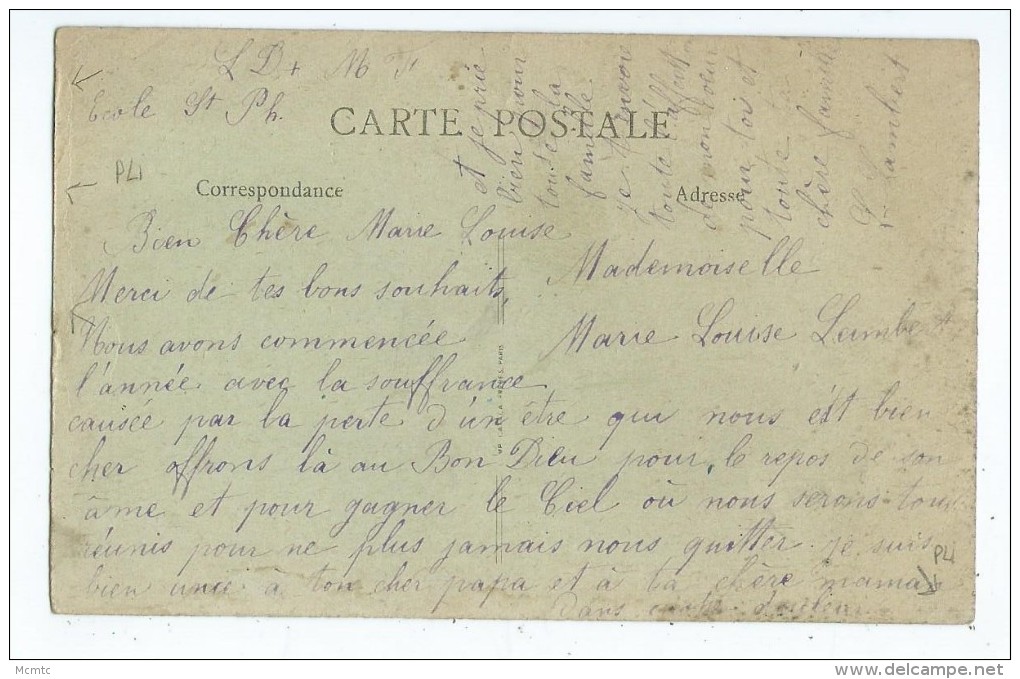 L D + M F
Ecole St Ph.
CARTE POSTALE
PLI
Correspondance
Adresse
Bien Chère Marie Louise
Merci de tes bons souhaits,
Nous avons commencée
l'année avec la souffrance
causée par la perte d'un être qui nous est bien
cher offrons là au Bon Dieu pour le repos de son
âme et pour gagner le Ciel où nous serons tous
réunis pour ne plus jamais nous quitter. je suis
bien unie à ton cher papa et à ta chère maman
dans
PLI
Mademoiselle
Marie Louise Lambert
et je prie
bien pour
toute la
famille.
je t'envoi
toute l'affect
de mon coeur
pour toi et
toute ta
chère famille
L Lambert
PARIS
Mcmtc
www.delcampe.net